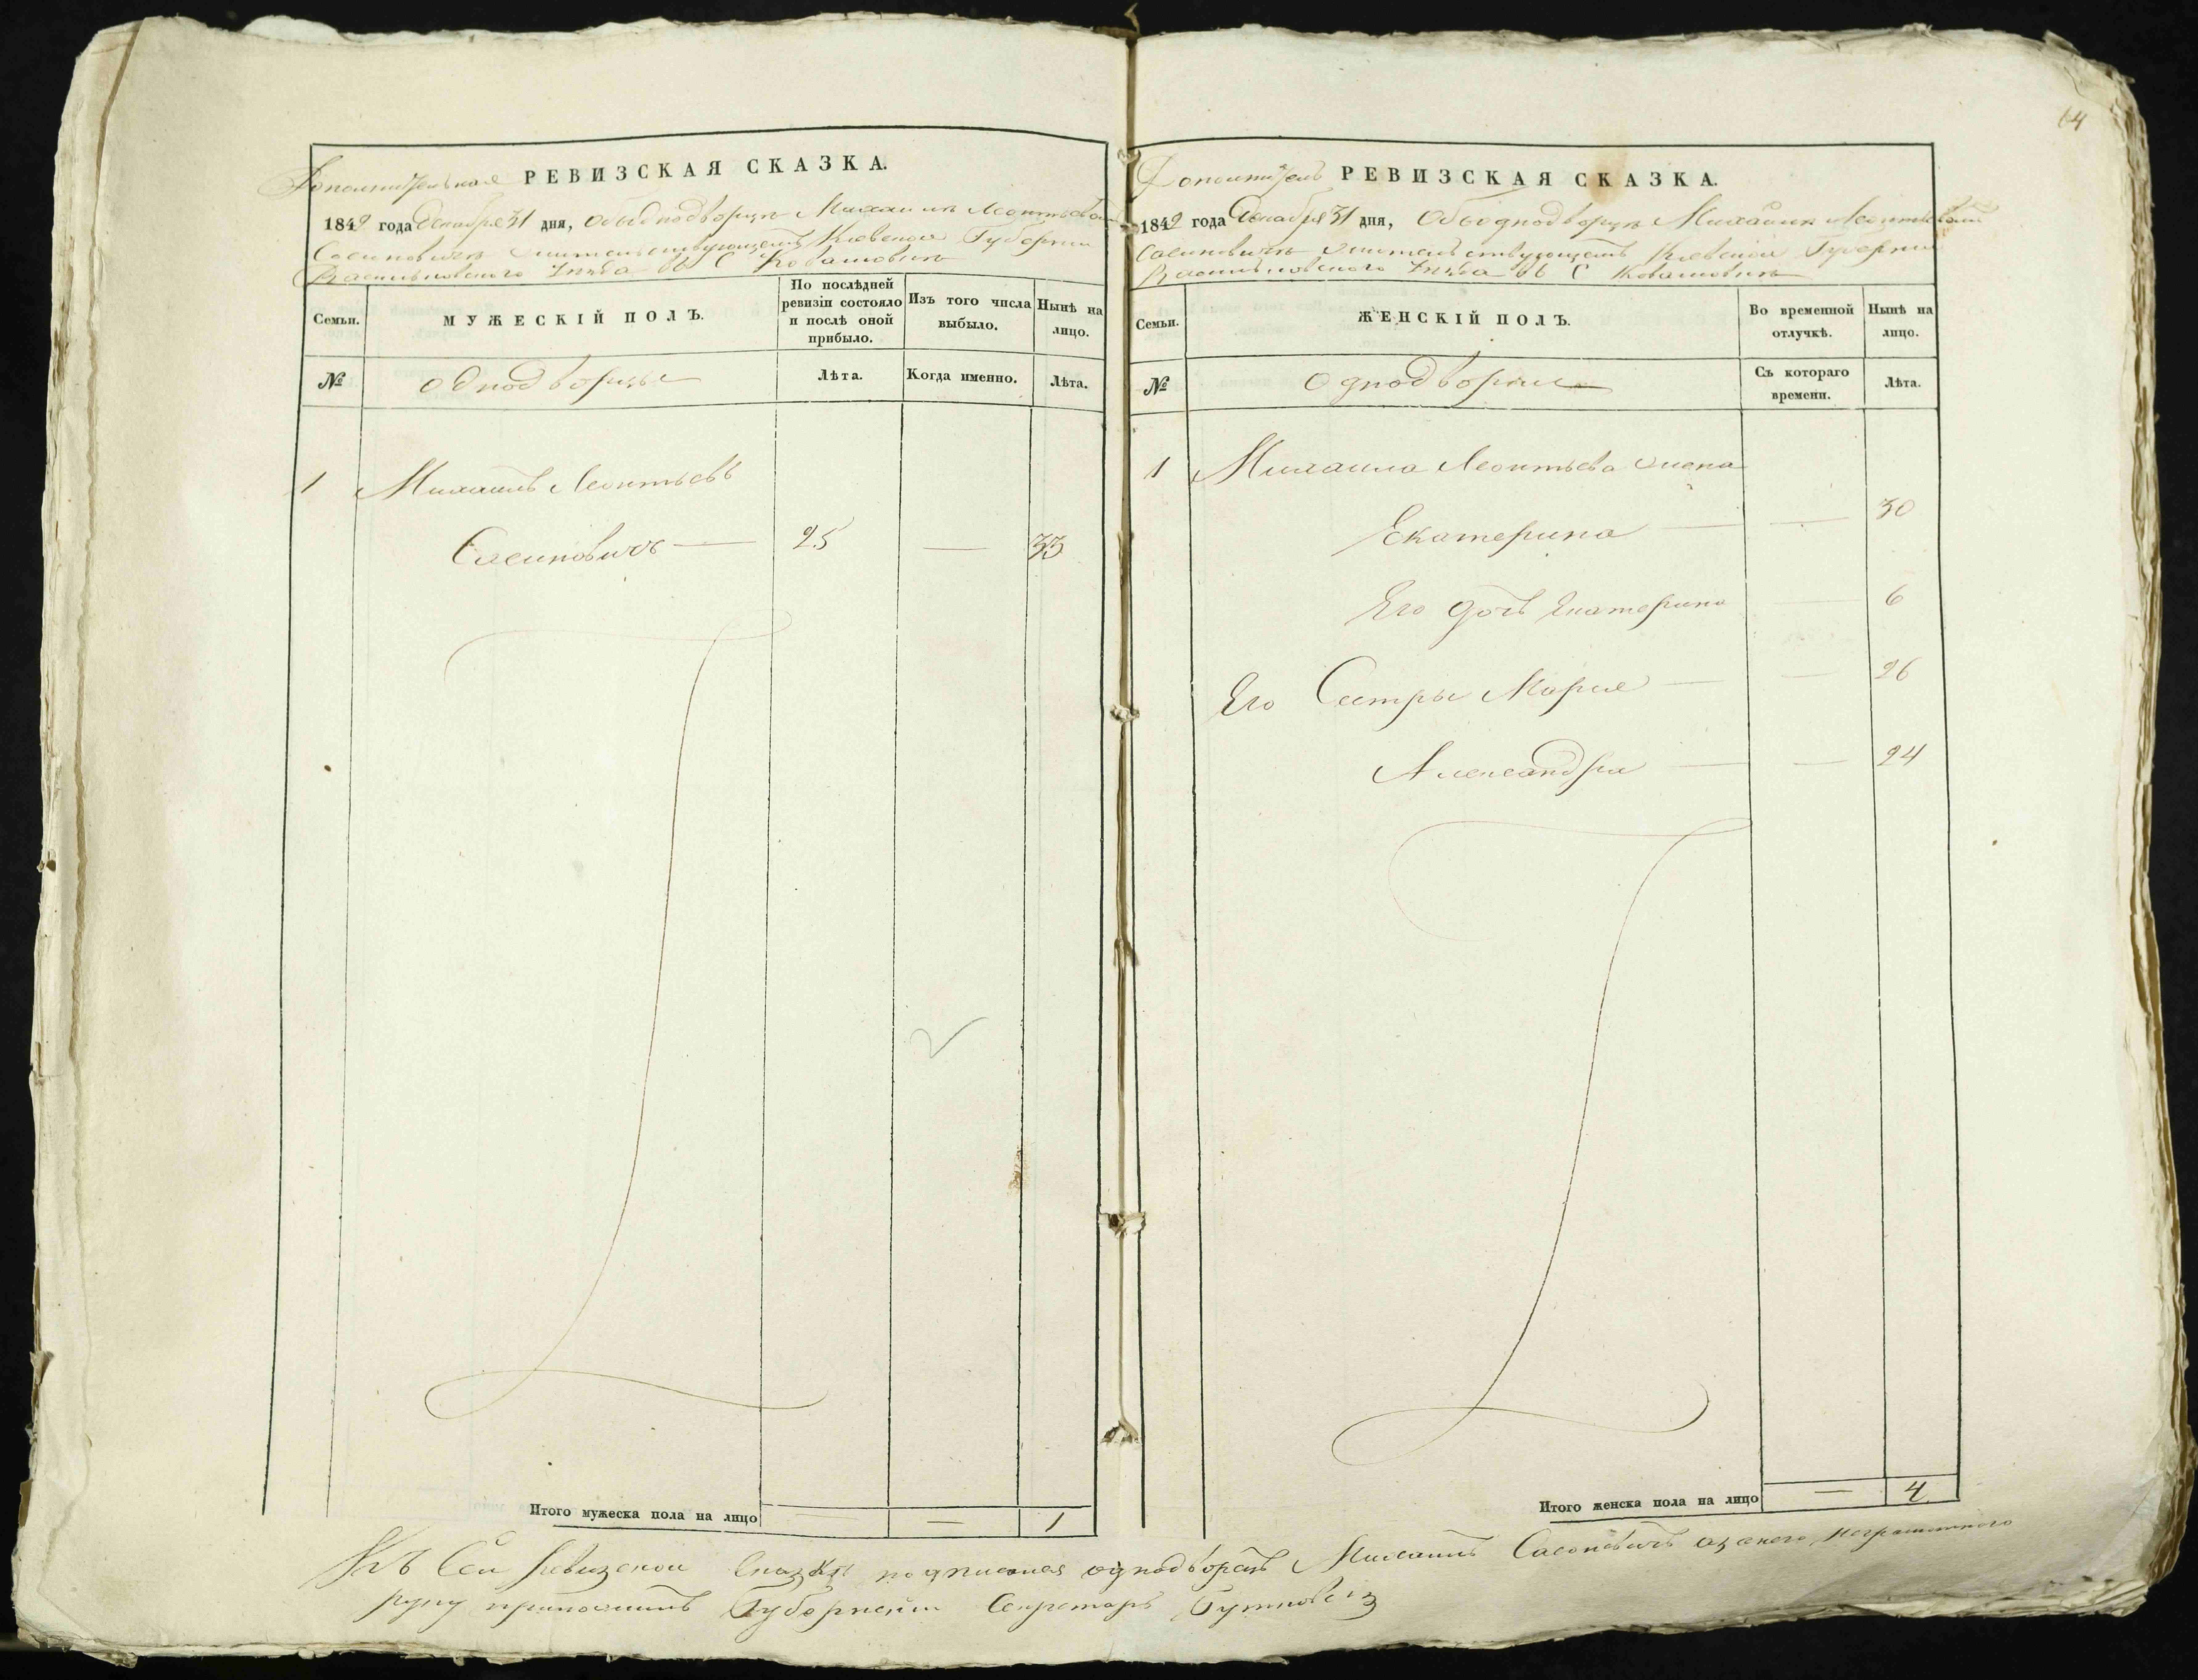 64
Дополнительная РЕВИЗСКАЯ СКАЗКА.
1842 года Декабря 31 дня, Объ однодворцѣ Михаилѣ Леонтьевѣ
жительствующемъ Кіевской Губерніи
Васильковскаго Уѣзда въ С
Семьи.
МУЖЕСКІЙ ПОЛЪ.
По послѣдней ревизіи состояло и послѣ оной прибыло.
Изъ того числа выбыло.
Нынѣ на лицо.
№
Однодворцы
Лѣта.
Когда именно.
Лѣта.
1 Михаилъ Леонтьевъ
Сасиновичъ — 25 — 33
Итого мужеска пола на лицо — — 1
Дополнитель РЕВИЗСКАЯ СКАЗКА.
1842 года Декабря 31 дня, Объ однодворцѣ Михаилѣ Леонтьевѣ
жительствующемъ Кіевской Губерніи
Васильковскаго Уѣзда въ С
Семьи.
ЖЕНСКІЙ ПОЛЪ.
Во временной отлучкѣ.
Нынѣ на лицо.
№
Однодворки
Съ котораго времени.
Лѣта.
1 Михаила Леонтьева жена
Екатерина — — 30
Его дочь Екатерина — 6
Его Сестры Марія — — 26
Александра — — 24
Итого женска пола на лицо — 4
Къ Сей Ревизской Сказкѣ однодворецъ Михаилъ неграмотнаго
руку приложилъ Губернскій Секретарь